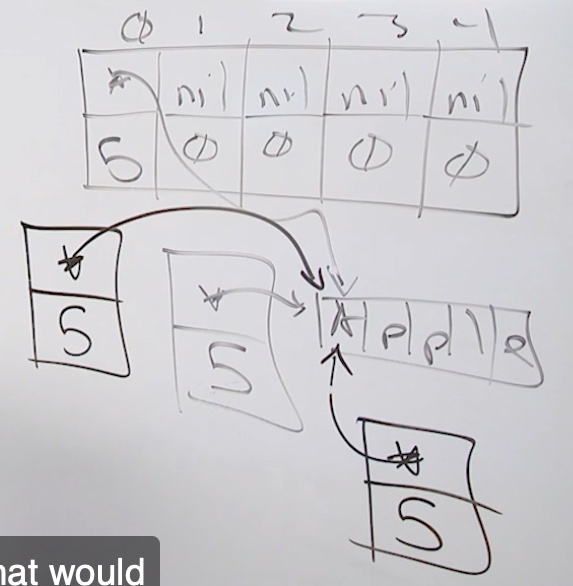 0 1 2 3 4
* nil nil nil nil
5 0 0 0 0
*
5
*
5
A p p l e
*
5
hat would